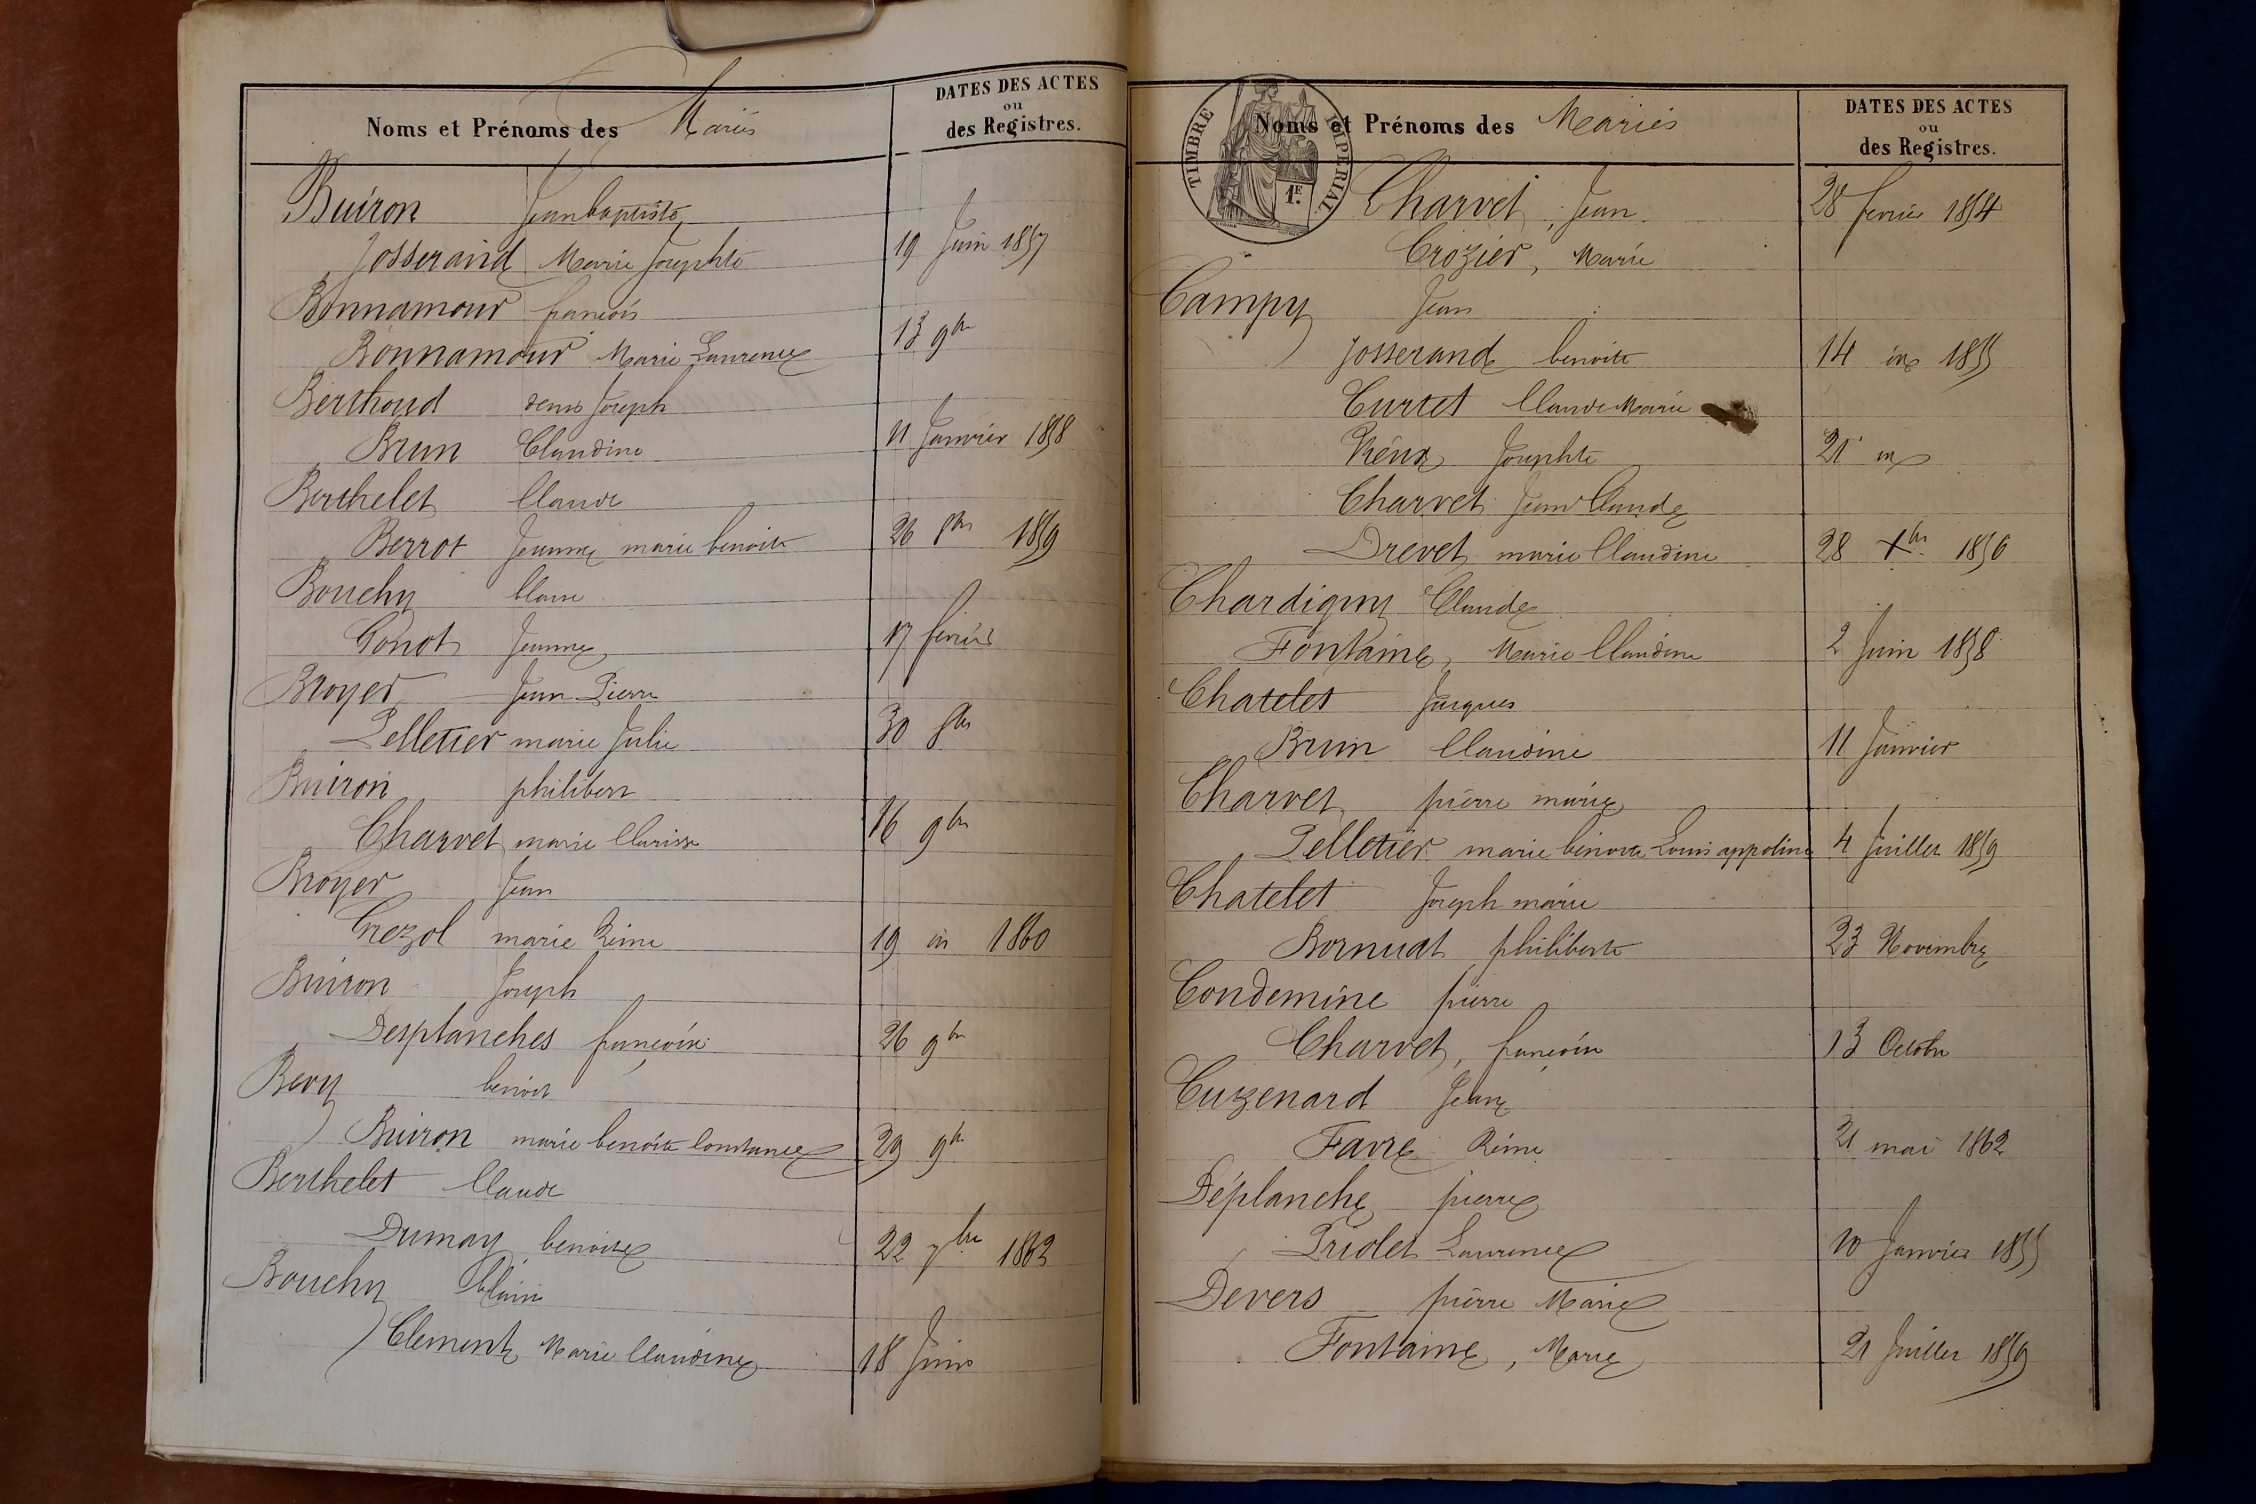 Noms et Prénoms des Mariés
DATES DES ACTES
ou
des Registres.
Buiron Jean baptiste
Josserand Marie Josephte 19 Juin 1857
Bonnamour francois
Bonnamour Marie Laurence 13 9bre
Berthoud denis Joseph
Brun Claudine 11 Janvier 1858
Berthelet Claude
Berrot Jeanne marie benoite 26 8bre 1859
Bouchy Claude
Gonot Jeanne 17 fevrier
Broyer Jean Pierre
Pelletier marie Julie 30 8bre
Buiron philibert
Charvet marie Clarisse 16 9bre
Broyer Jean
Chezol marie Reine 19 1860
Buiron Joseph
Desplanches francoise 26 9bre
Bevy benoit
Buiron marie benoite Constance 29 9bre
Berthelet Claude
Dumay benoite 22 7bre 1862
Bouchy
Clement Marie Claudine 18 Juin
Noms et Prénoms des Mariés
DATES DES ACTES
ou
des Registres.
TIMBRE IMPERIAL
1F.
Charvet, Jean 28 fevrier 1854
Crozier, Marie
Campy Jean
Josserand benoite 14 1855
Curtet Claude Marie
Réux Josephte 21
Charvet Jean Claude
Drevet marie Claudine 28 Xbre 1856
Chardigny Claude
Fontaine, Marie Claudine 2 Juin 1858
Chatelet Jacques
Brun Claudine 11 Janvier
Charvet pierre marie
Pelletier marie benoite Louis appoline 4 Juillet 1859
Chatelet Joseph marie
Bornuat philiberte 23 Novembre
Condemine pierre
Charvet, francoise 13 Octobre
Cuzzenard Jean
Favre Reine 21 mai 1862
Déplanche pierre
Priolet Laurence 10 Janvier 1855
Devers pierre Marie
Fontaine, Marie 21 Juillet 1859